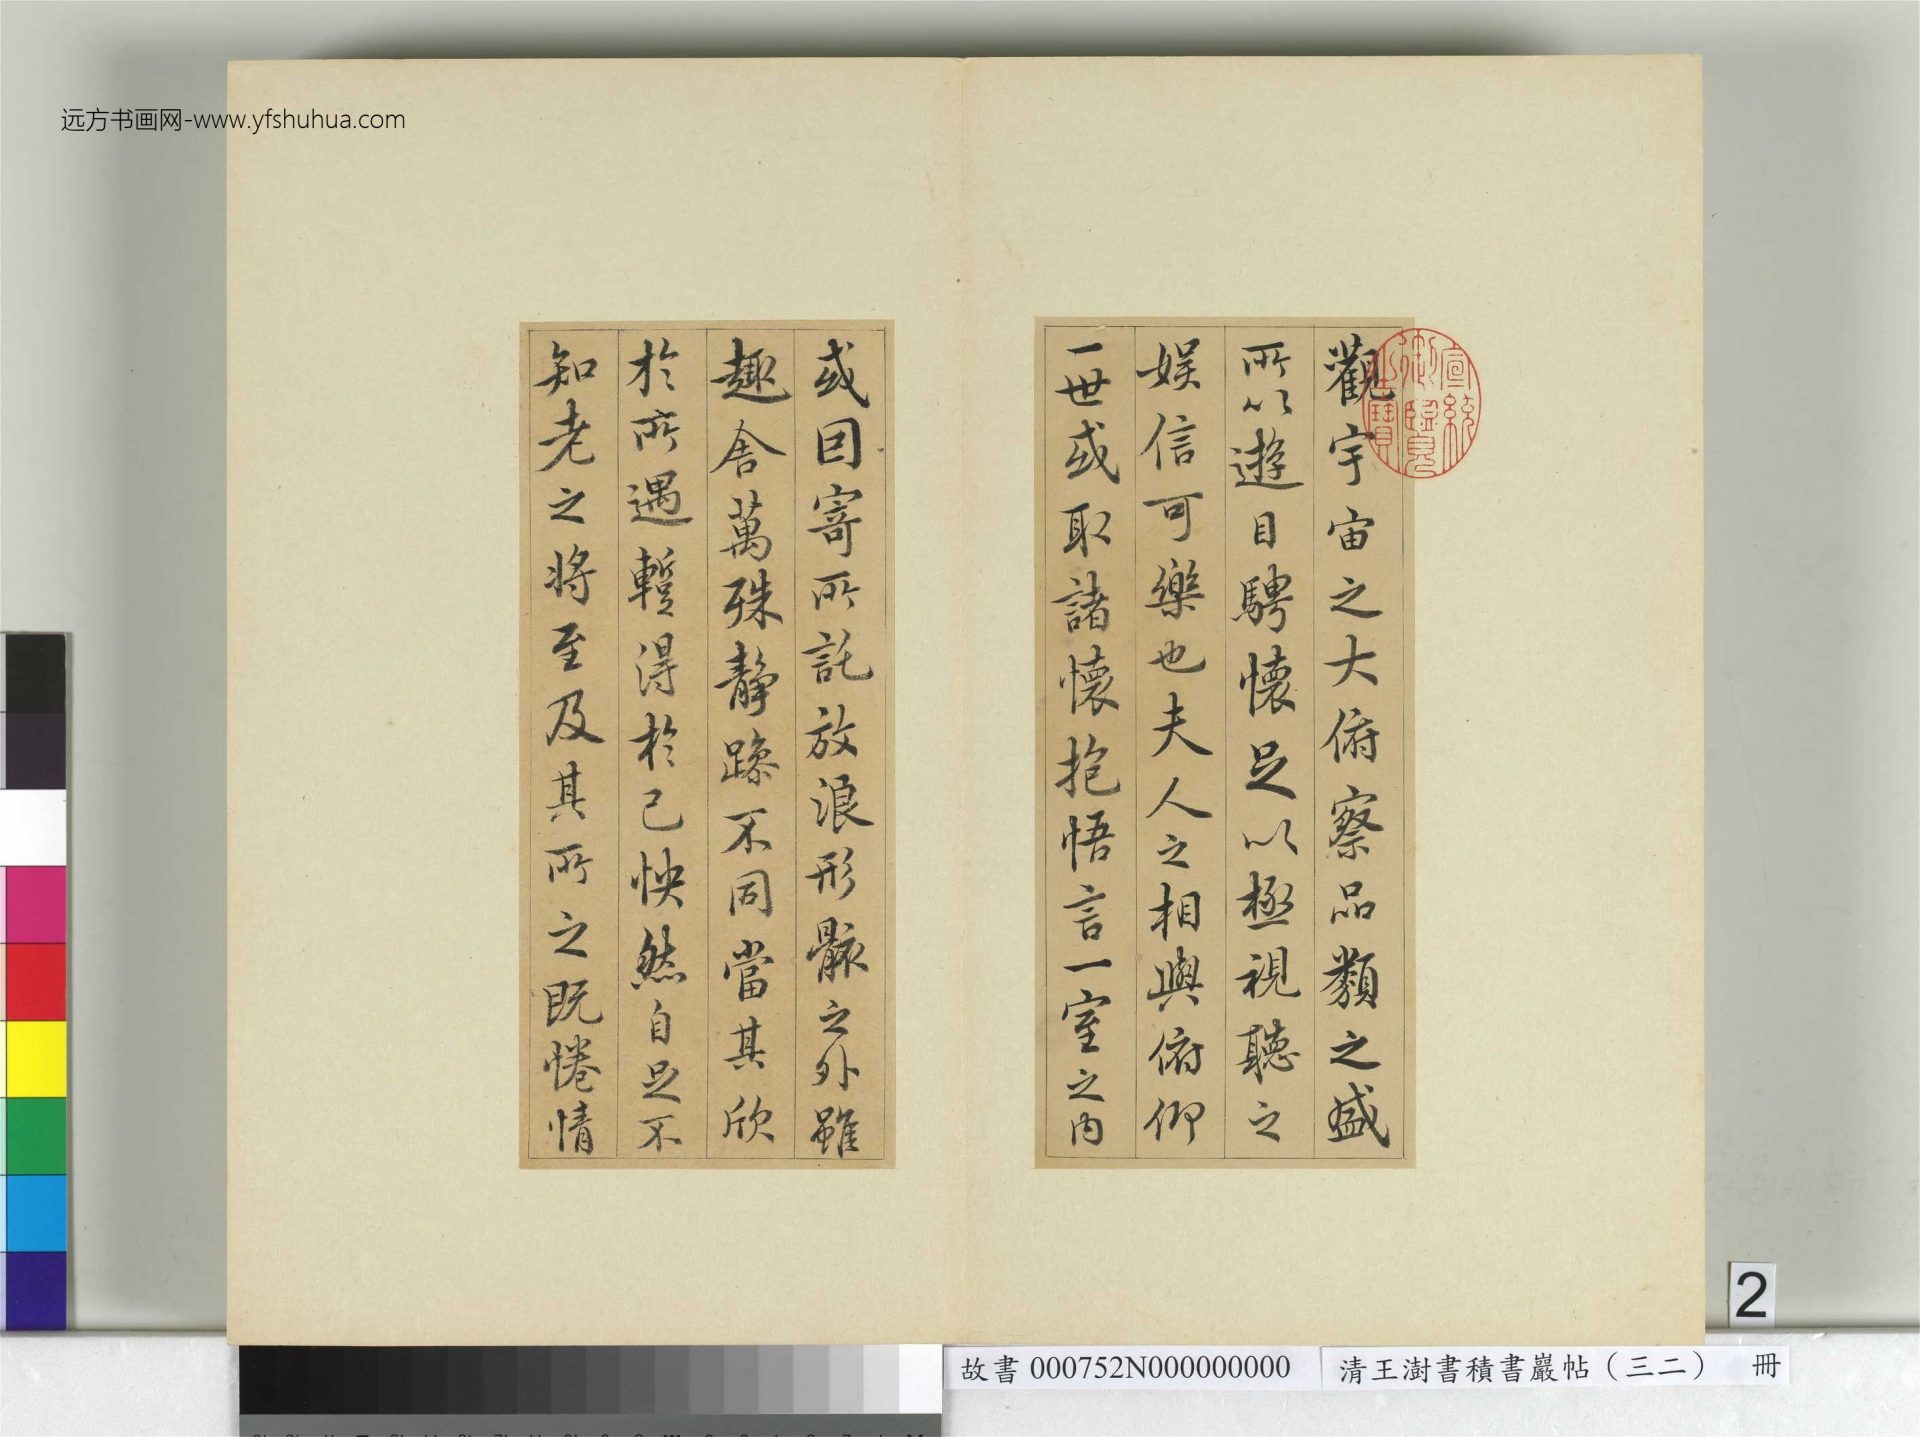 远方书画网-www.yfshuhua.com
觀宇宙之大俯察品類之盛
所以遊目騁懷足以極視聽之
娱信可樂也夫人之相與俯仰
一世或取諸懷抱悟言一室之内
或因寄所託放浪形骸之外雖
趣舍萬殊静躁不同當其欣
於所遇暫得於己怏然自足不
知老之將至及其所之既惓情
宣統御覽之寶
2
故書 000752N000000000
清王澍書積書巖帖（三二） 冊